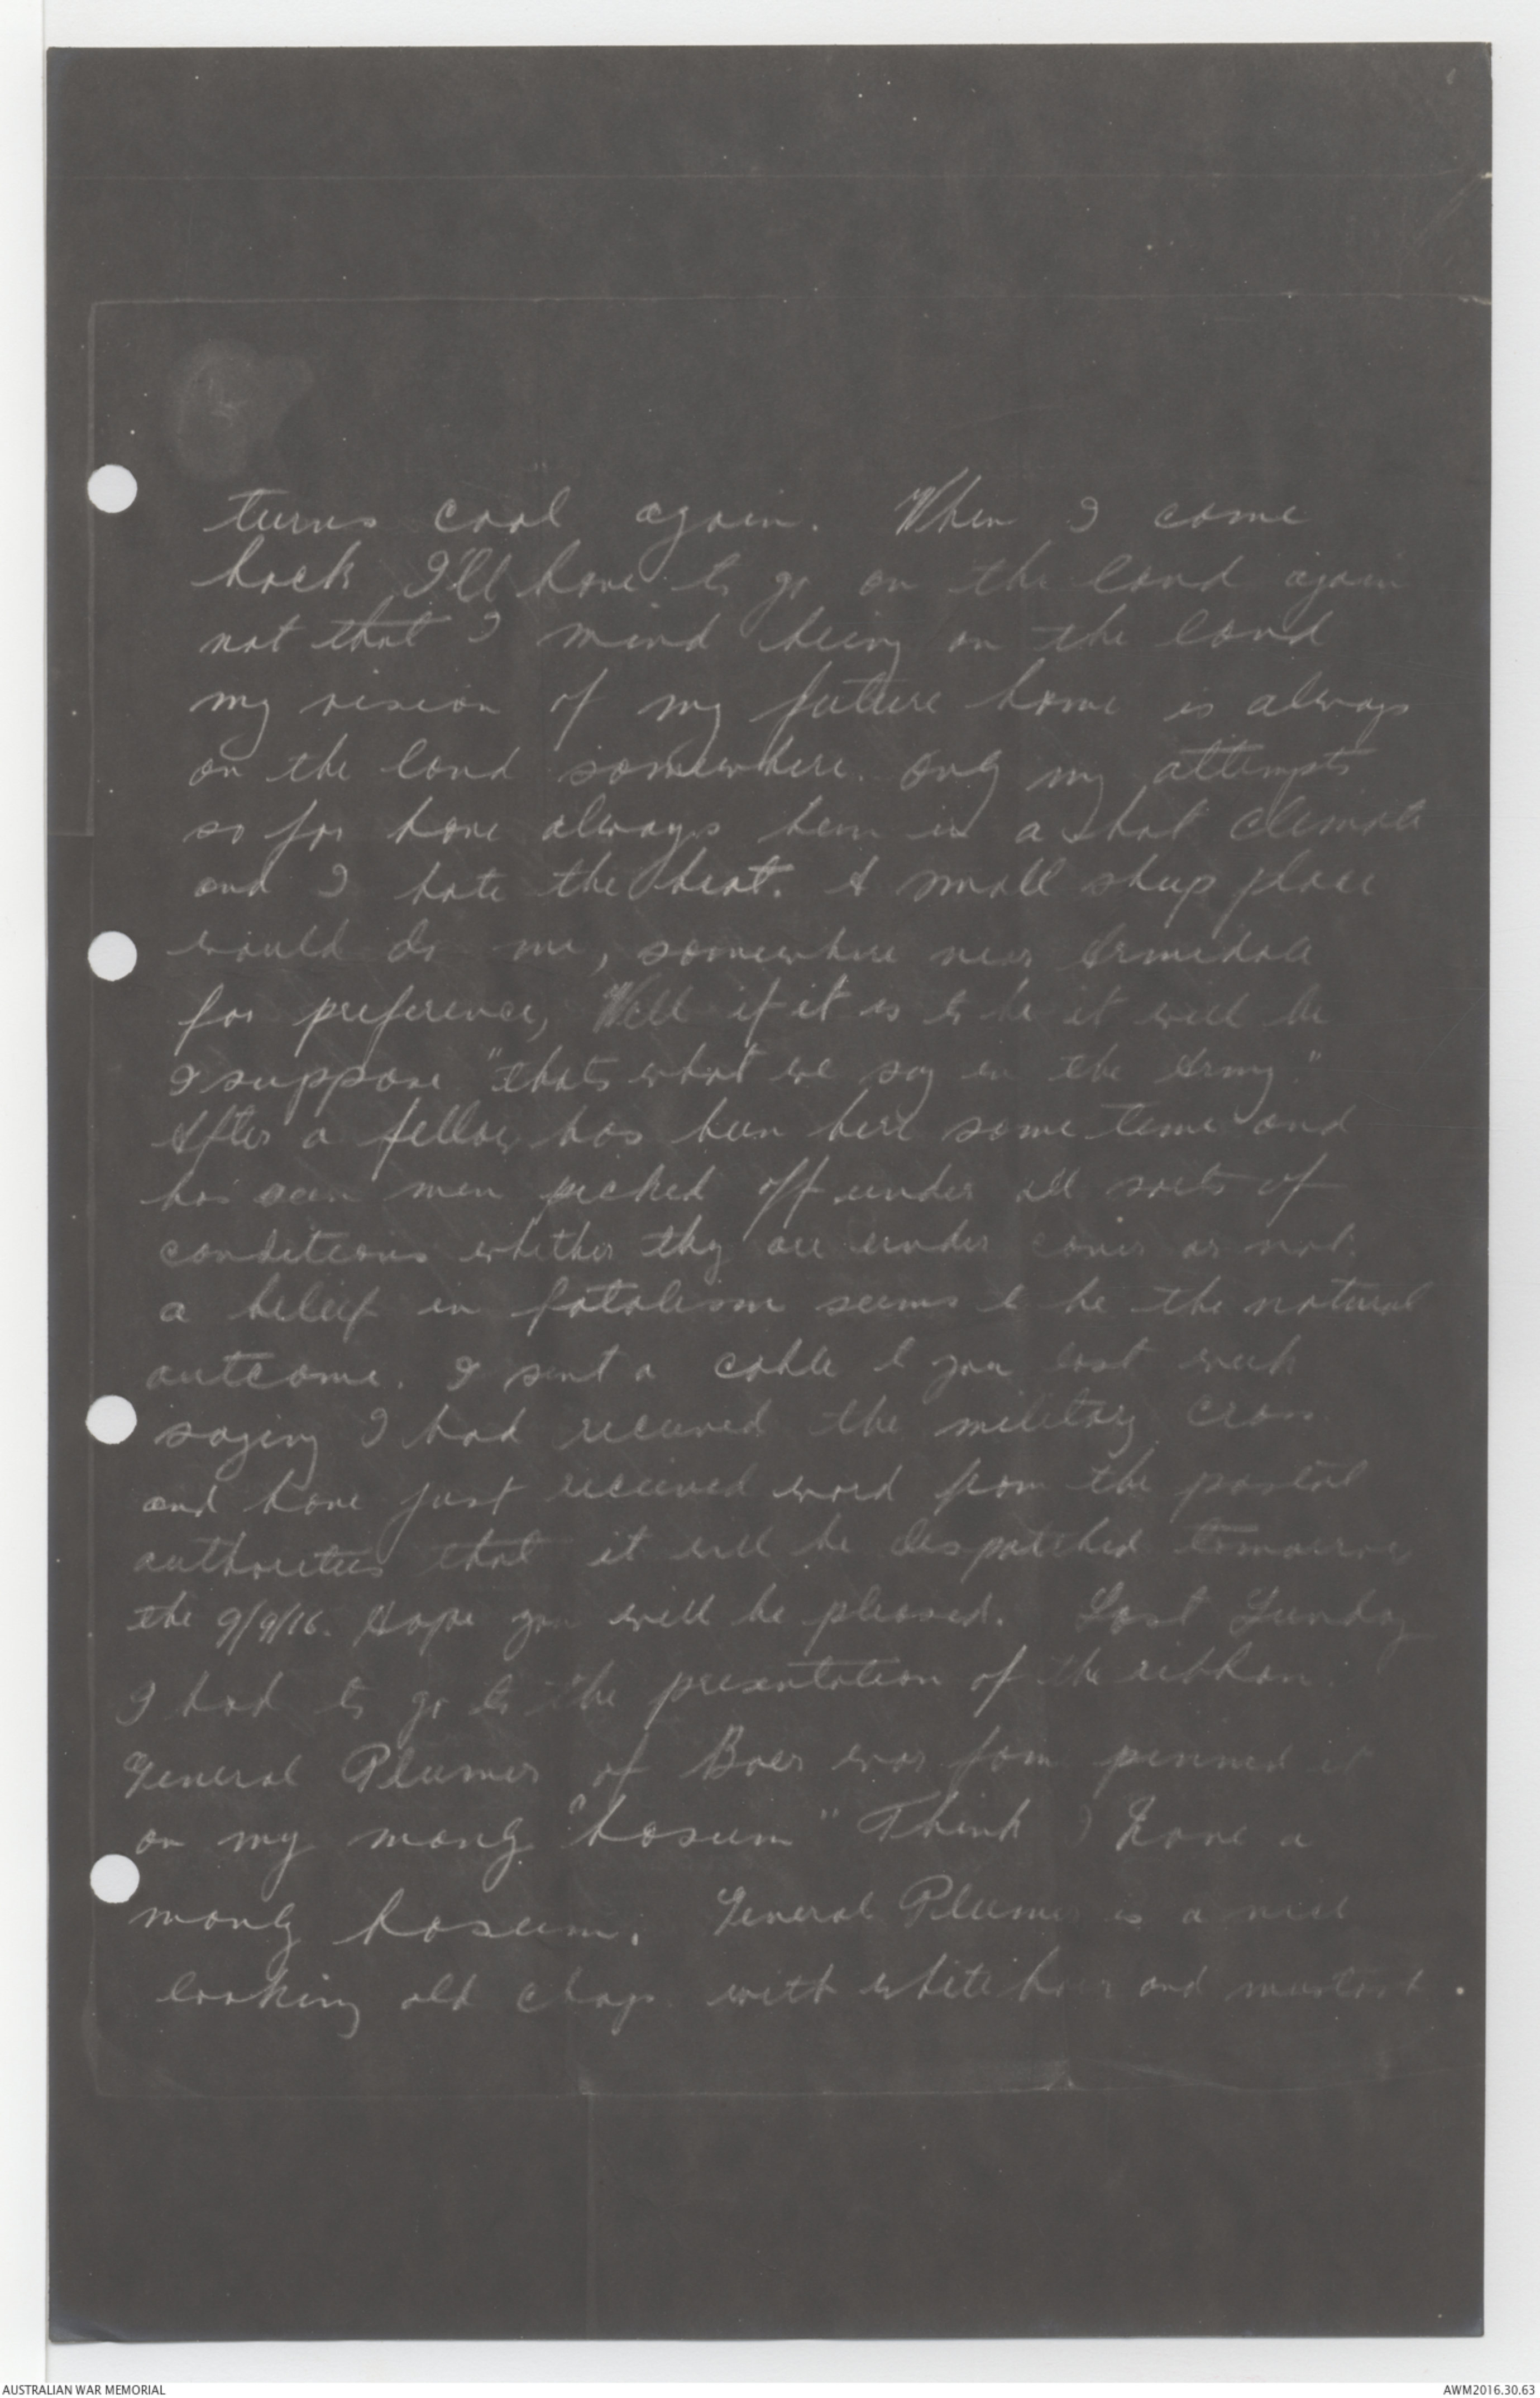 turns cool again. When I come
back I'll have to go on the land again
not that I mind being on the land
my vision of my future home is always
on the land somewhere. Only my attempts
so far have always been in a hot climate
and I hate the heat. A small sheep place
would do me, somewhere near Armidale
for preference, Well if it is to be it will be
I suppose "thats what we say in the Army."
After a fellow has been here some time and
has seen men picked off under all sorts of
conditions whether they are under cover or not.
a beleif in fatalism seems to be the natural
outcome. I sent a cable to you last week
saying I had received the military cross
and have just received word from the postal
authorities that it will be despatched tomorrow
the 9/9/16. Hope you will be pleased. Last Sunday
I had to go to the presentation of the ribbon.
General Plumer of Boer war fame pinned it
on my manly "bosum" Think I have a
manly bosum. General Plumer is a nice
looking old chap with white hair and mustash.
AUSTRALIAN WAR MEMORIAL
AWM2016.30.63